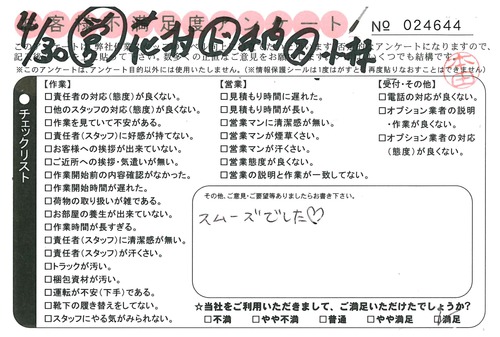 お客様不満足度アンケート
No 024644
4/30 営
【作業】
□責任者の対応(態度)が良くない。
□他のスタッフの対応(態度)が良くない。
□作業を見ていて不安がある。
□責任者(スタッフ)に好感が持てない。
□お客様への挨拶が出来ていない。
□ご近所への挨拶・気遣いが無い。
□作業開始前の内容確認がなかった。
□作業開始時間が遅れた。
□荷物の取り扱いが雑である。
□お部屋の養生が出来ていない。
□作業時間が長すぎる。
□責任者(スタッフ)に清潔感が無い。
□責任者(スタッフ)が汗くさい。
□トラックが汚い。
□梱包資材が汚い。
□運転が不安(下手)である。
□靴下の履き替えをしてない。
□スタッフにやる気がみられない。
【営業】
□見積もり時間に遅れた。
□見積もり時間が長い。
□営業マンに清潔感が無い。
□営業マンが煙草くさい。
□営業マンが汗くさい。
□営業態度が良くない。
□営業の説明と作業が一致してない。
【受付・その他】
□電話の対応が良くない。
□オプション業者の説明
・作業が良くない。
□オプション業者の対応
(態度)が良くない。
チェックリスト
その他、ご意見・ご要望等ありましたらお書き下さい。
スムーズでした♡
☆当社をご利用いただきまして、ご満足いただけたでしょうか?
□不満 □やや不満 □普通 □やや満足 □満足